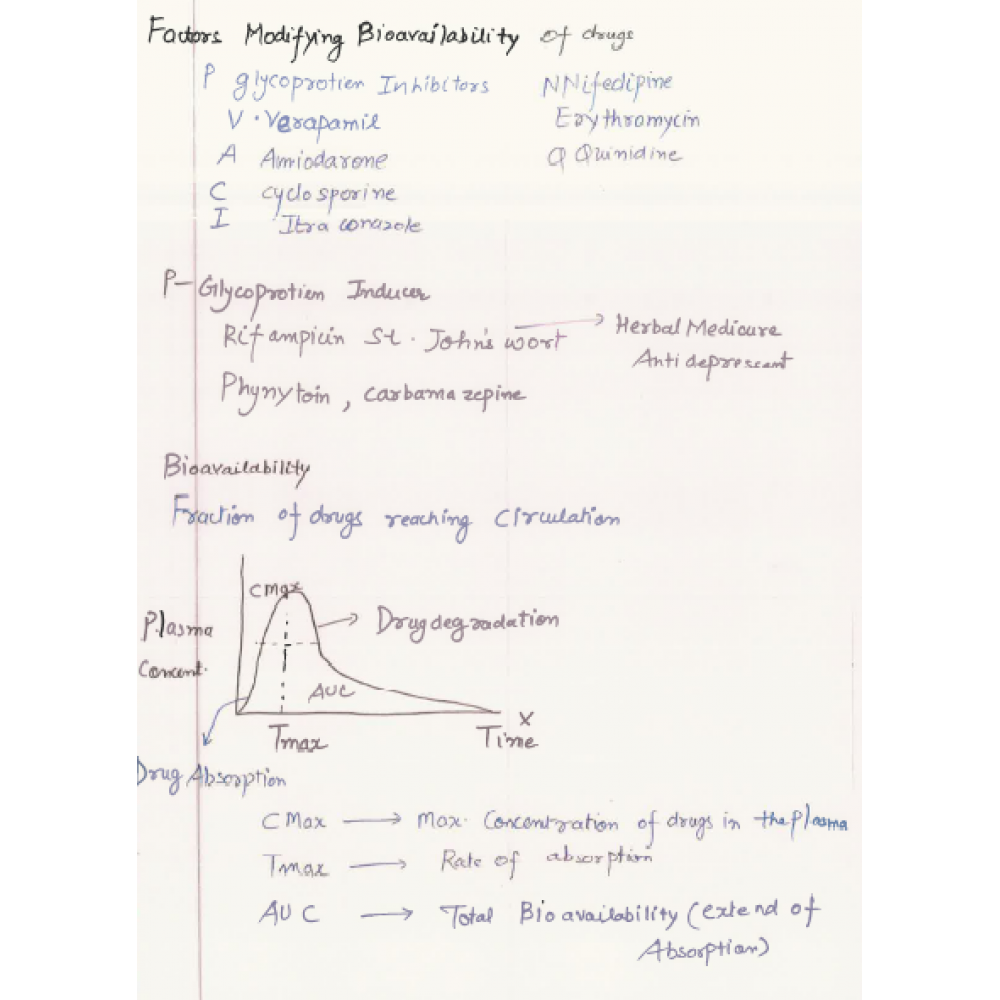 Factors Modifying Bioavailability of drugs
P glycoprotien Inhibitors
V. Verapamil
A Amiodarone
C cyclosporine
I Itra conazole
NNifedipine
Erythromycin
Q Quinidine
P-Glycoprotien Inducer
Rifampicin St. John's wort → Herbal Medicure
Anti deprescant
Phynytoin, carbamazepine
Bioavailability
Fraction of drugs reaching Circulation
CMax
Plasma
Concent.
Drug degradation
AUC
Tmax
X
Time
Drug Absorption
CMax → Max. Concentration of drugs in the Plasma
Tmax → Rate of absorption
AUC → Total Bioavailability (extend of
Absorption)